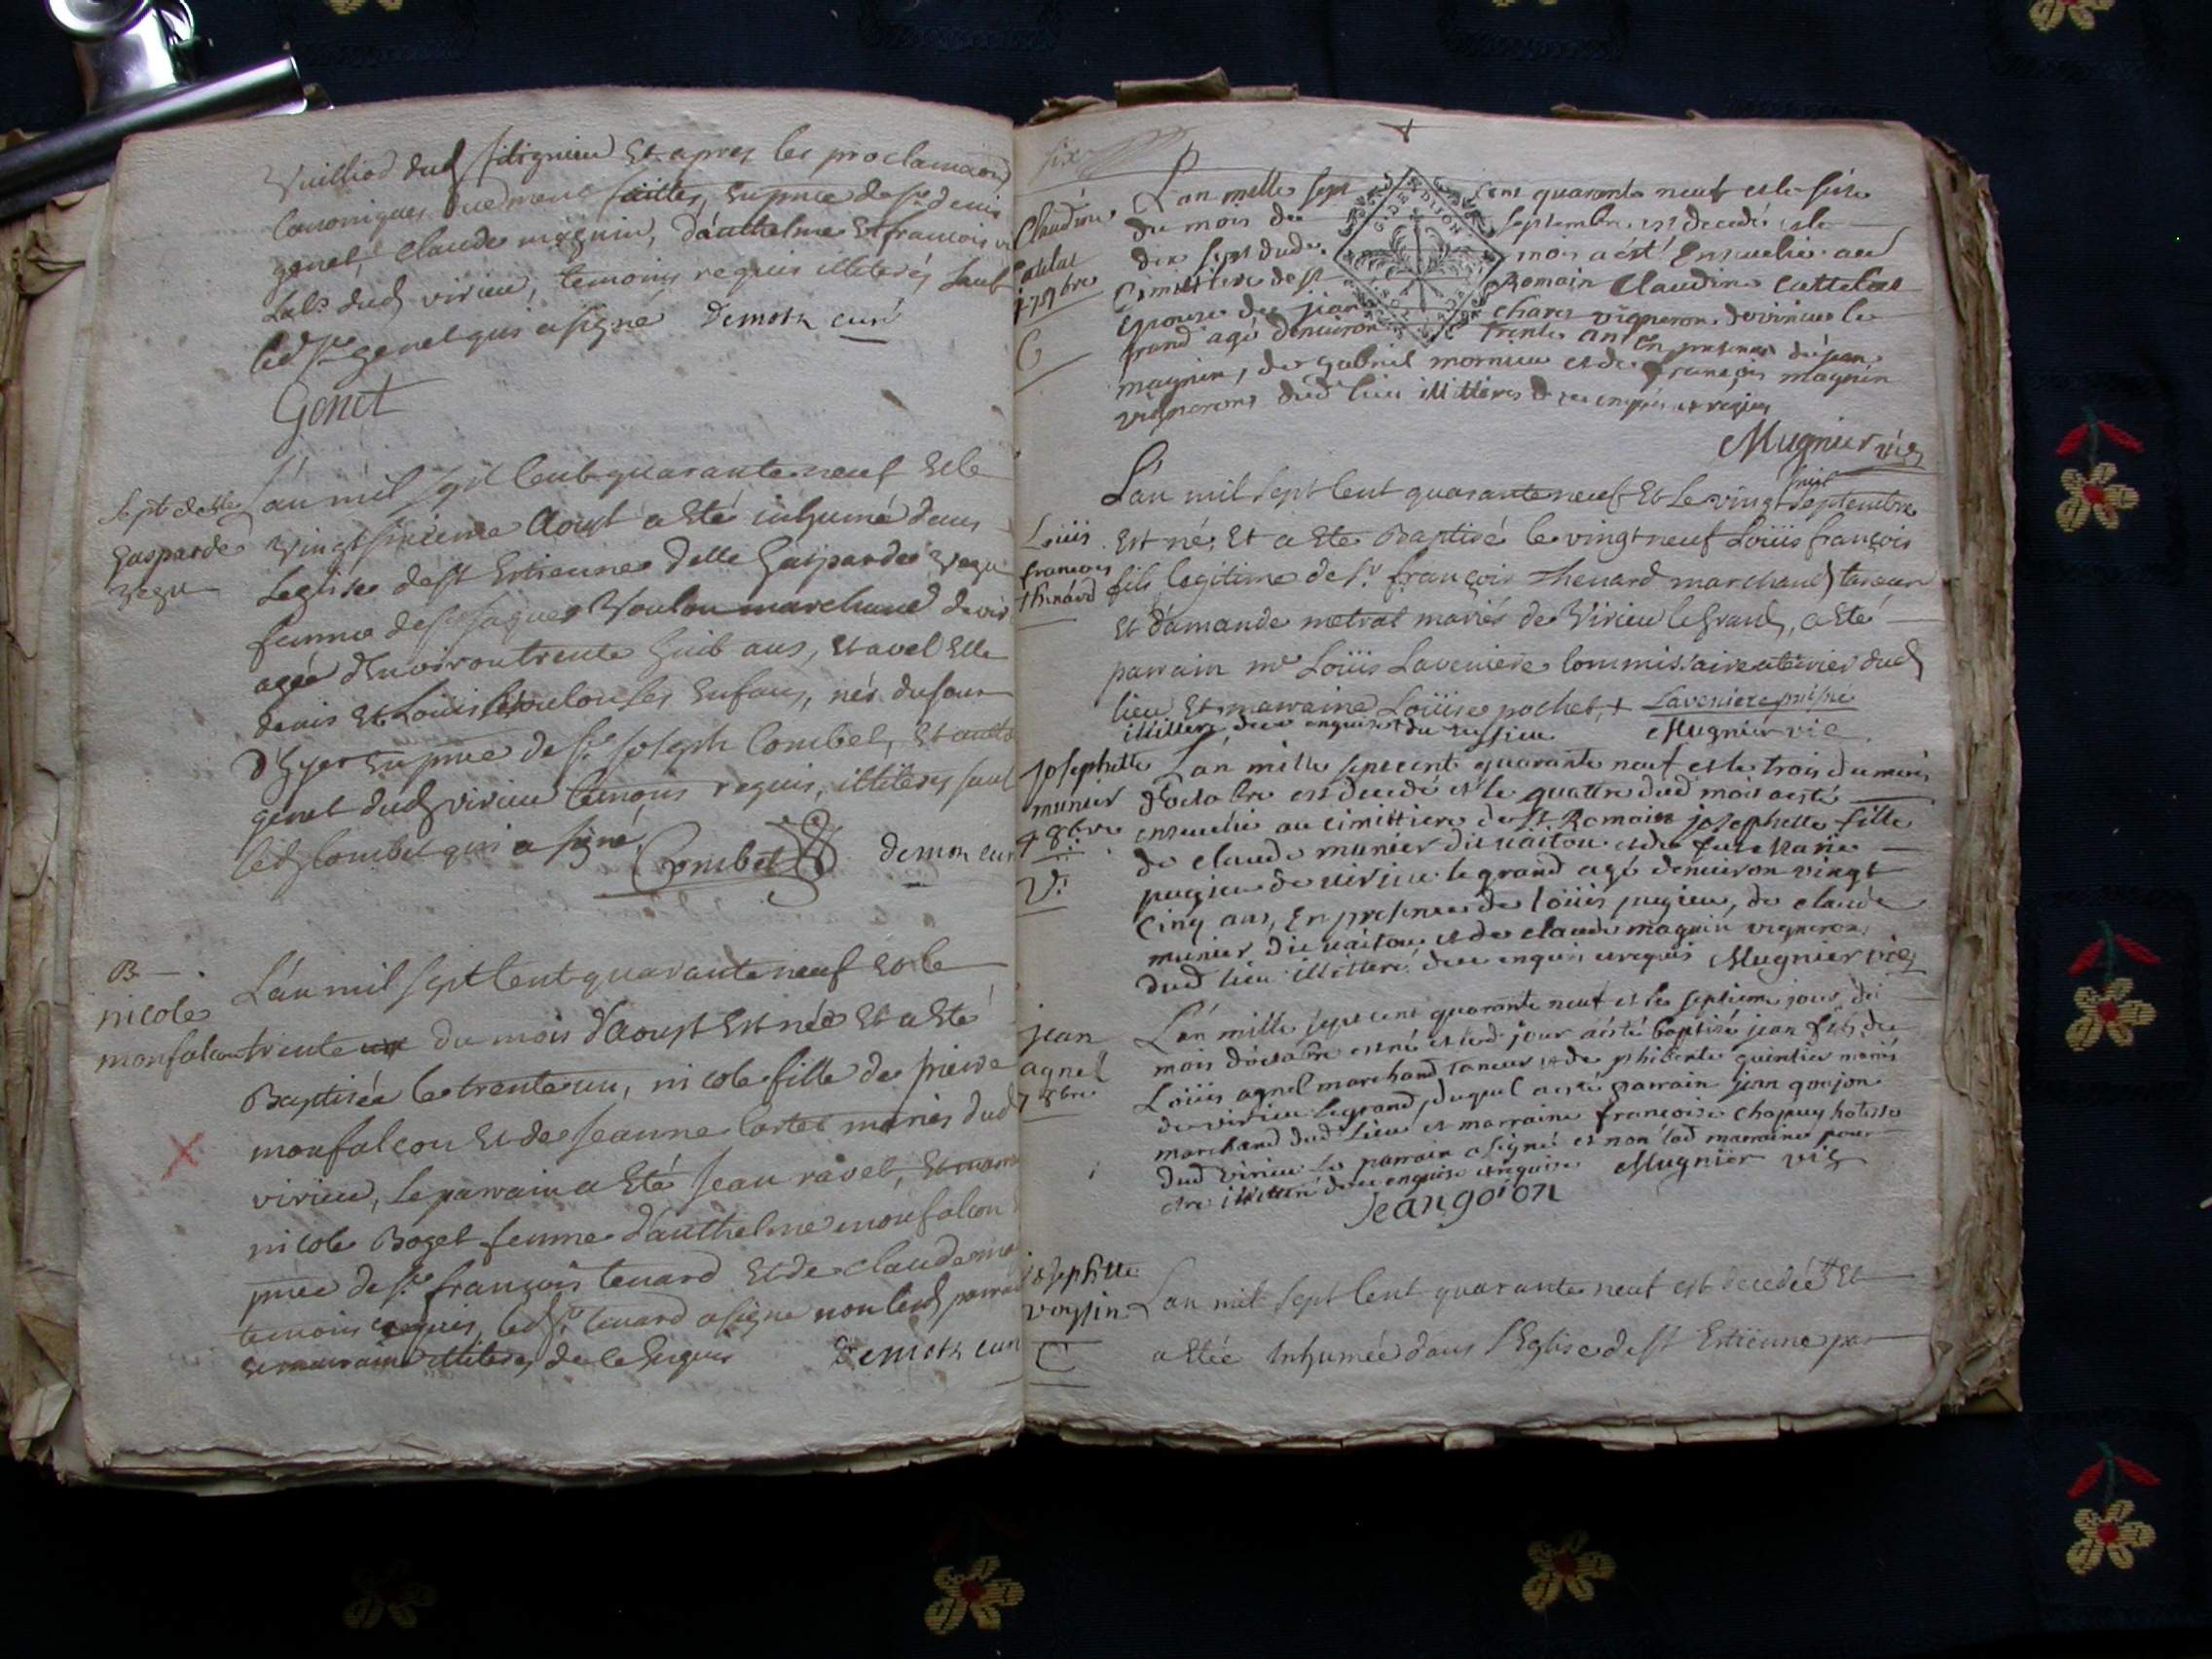 Vuilliod dud silignieu Et apres les proclamaons
Canoniques duement faittes, En pnce de sr. denis
genet, Claude magnin, d'anthelme Et francois
Lab. dud virieu, temoins requis illiterés sauf
led sr genet qui a signé Demoth curé
Genet
Sept. delle
Gasparde
L'an mil sept Cent quarante neuf Et le
vingt sixieme Aoust a Eté inhumé dans
L'eglise de st Estienne delle Gasparde
femme de sr Jaques marchand de vir
agée d'Environ trente huit ans, Et avec Elle
denis Et Louis ses Enfans, nés du jour
d'hyer En pnce de sr. Joseph Combet, Et
genet dud virieu temoins requis, illiterés sauf
led Combet qui a signé
Combet Demoth cur
B
nicole
monfalcon
L'an mil sept Cent quarante neuf Et le
trente du mois d'aoust Est née Et a Eté
Baptisée le trente un, nicole fille de pierre
monfalcon Et de Jeanne Cortet mariés dud
virieu, Le parrain a Eté Jean ravet, Et marr
nicole Boget femme d'anthelme monfalcon
pnce de sr. françois tenard Et de claude
temoins requis, led sr. tenard a signé non led parrain
Et marraine illiterés de ce Enquis Demoth cur
six
Claudine
Cattelat
17 7bre
C
L'an mille sept cent quarante neuf et le size
du mois de septembre est decedé et le
dix sept dud mois a esté Ensevelie au
Cimistiere de st Romain Claudine Cattelat
Epouse de jean charet vigneron de virieu le
grand agé denviron trente ans En presence de jean
magnin, de gabriel mornieu et de françois magnin
vignerons dud lieu illittérés de ce enquis et requis
Mugnier vic
Loüis
francois
thenard
L'an mil sept Cent quarante neuf Et Le vingt huit septembre
Est né, Et a Eté Baptisé le vingt neuf Loüis françois
fils legitime de sr. françois thenard marchand taneur
Et d'amande metrat mariés de Virieu le Grand, a Eté
parrain me Loüis Laveniere Commissaire a terrier dud
lieu Et marraine Loüise pochet, + Laveniere
illittere de ce enquise Mugnier vic
josephette
munier
4 8bre
V.
L'an mille sept cent quarante neuf et le trois du mois
d'octobre est decedé et le quattre dud mois a esté
ensevelie au cimittiere de st Romain josephette fille
de claude munier dit vaitou et de feüe Marie
pugieu de virieu le grand agé denviron vingt
Cinq ans, En presence de Loüis pugieu, de claude
munier dit vaitou et de claude magnin vignerons
dud lieu illitteré de ce enquis et requis Mugnier vic
jean
agnel
7 8bre
L'an mille sept cent quarante neuf et le septieme jour du
mois d'octobre est né et led jour a esté baptisé jean fils de
Loüis agnel marchand taneur et de phiberte quintin mariés
de virieu le grand, duquel a esté parrain jean goujon
marchand dud Lieu et marraine françoise chapuy hotesse
dud virieu le parrain a signé et non lad marraine pour
etre illitteré de ce enquise et requise Mugnier vic
Jean goion
josephette
voysin
C
L'an mil sept Cent quarante neuf est decedée Et
a Etée Inhumée dans l'Eglise de st Estienne par